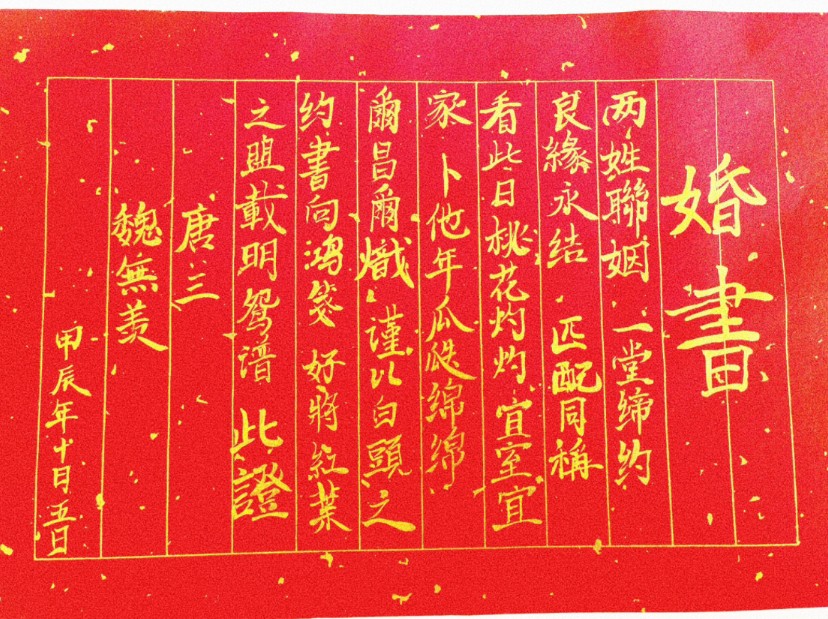 婚書
两姓聯姻 一堂缔约
良緣永结 匹配同稱
看此日桃花灼灼 宜室宜
家 卜他年瓜瓞绵绵
爾昌爾熾 谨以白頭之
约書向鸿笺 好將红葉
之盟載明鸳谱 此證
唐三
魏無羡
甲辰年十月五日